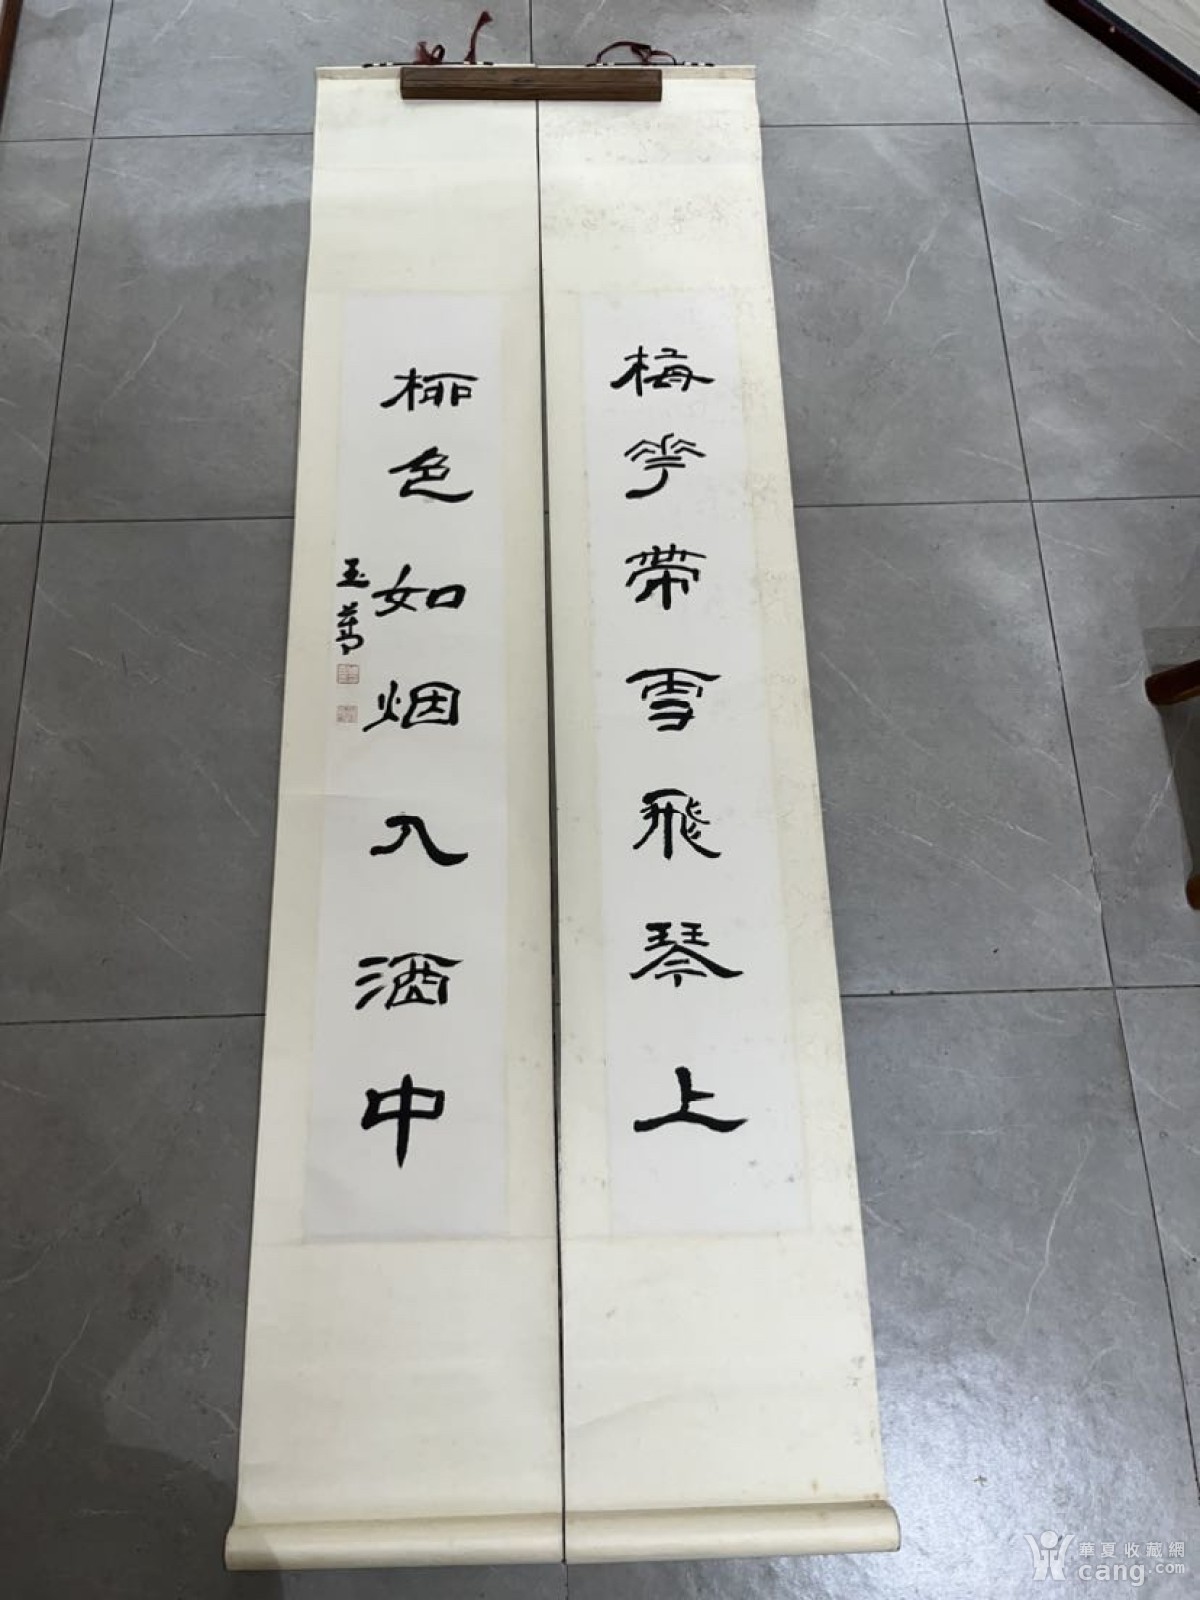 梅花带雪飛琴上
柳色如烟入酒中
華夏收藏網
cang.com